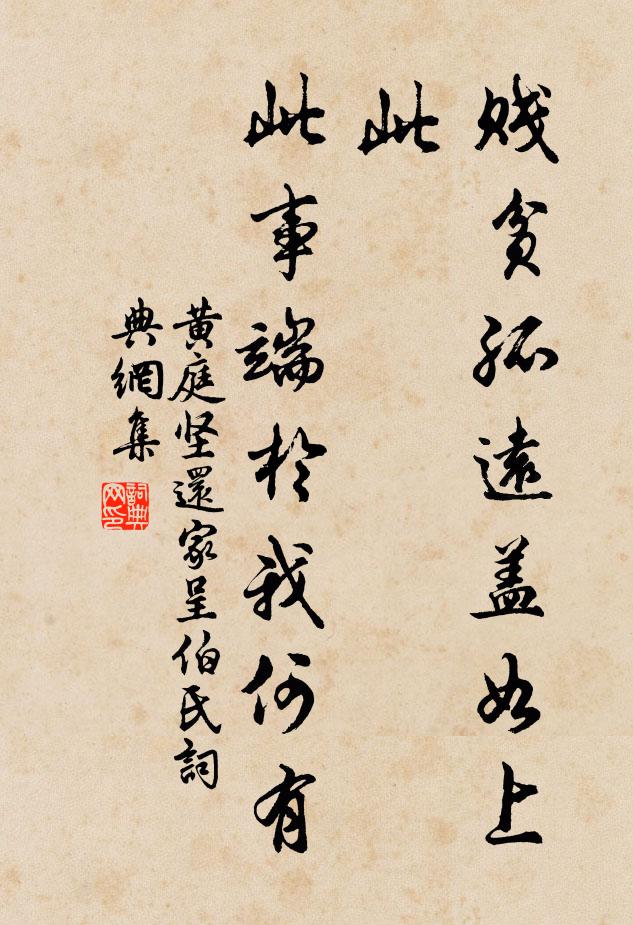 賤貧孤遠盖如上
此
此事端於我何有
黃庭坚還家呈伯氏詞
典網集
詞典
网印